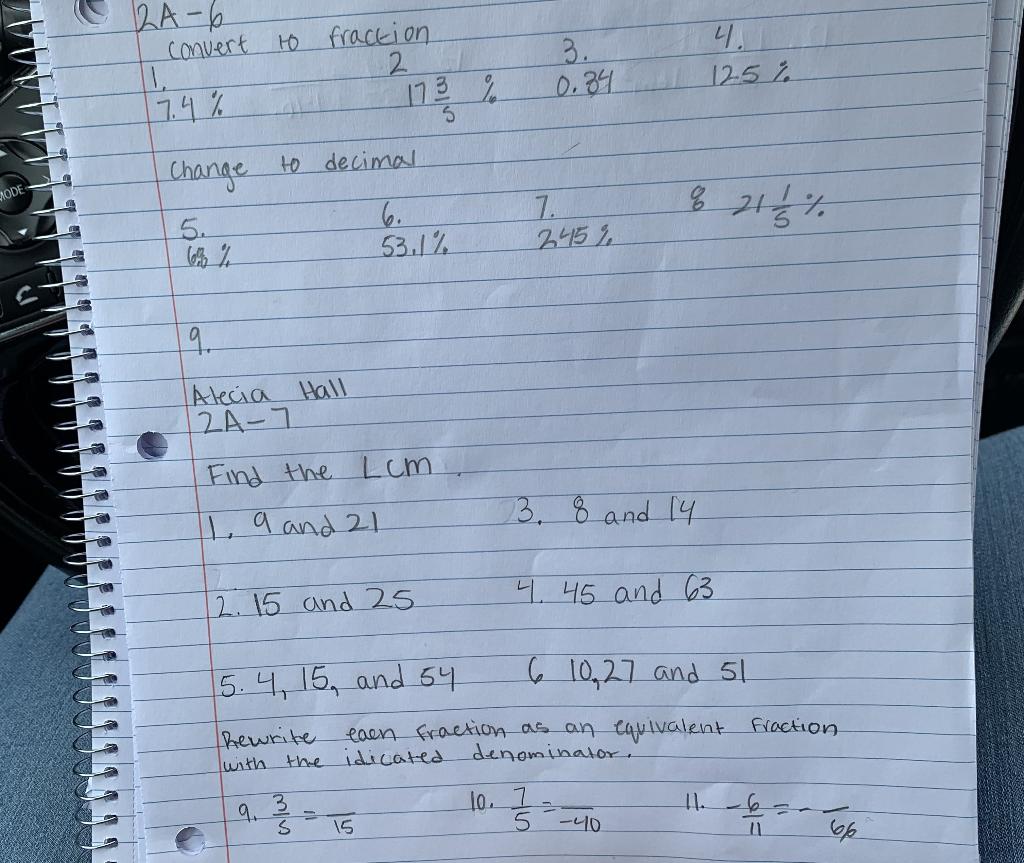 2A-6
Convert to fraction
1. 2 3. 4.
7.4 % 17 3/5 % 0.34 125 %
Change to decimal
5. 6. 7. 8 21 1/5 %
68 % 53.1% 245 %
9.
Alecia Hall
2A-7
Find the Lcm.
1. 9 and 21 3. 8 and 14
2. 15 and 25 4. 45 and 63
5. 4, 15, and 54 6 10,27 and 51
Rewrite each fraction as an equivalent fraction
with the idicated denominator.
9. 3/5 = __/15 10. 7/5 = __/-40 11. -6/11 = - __/66
MODE